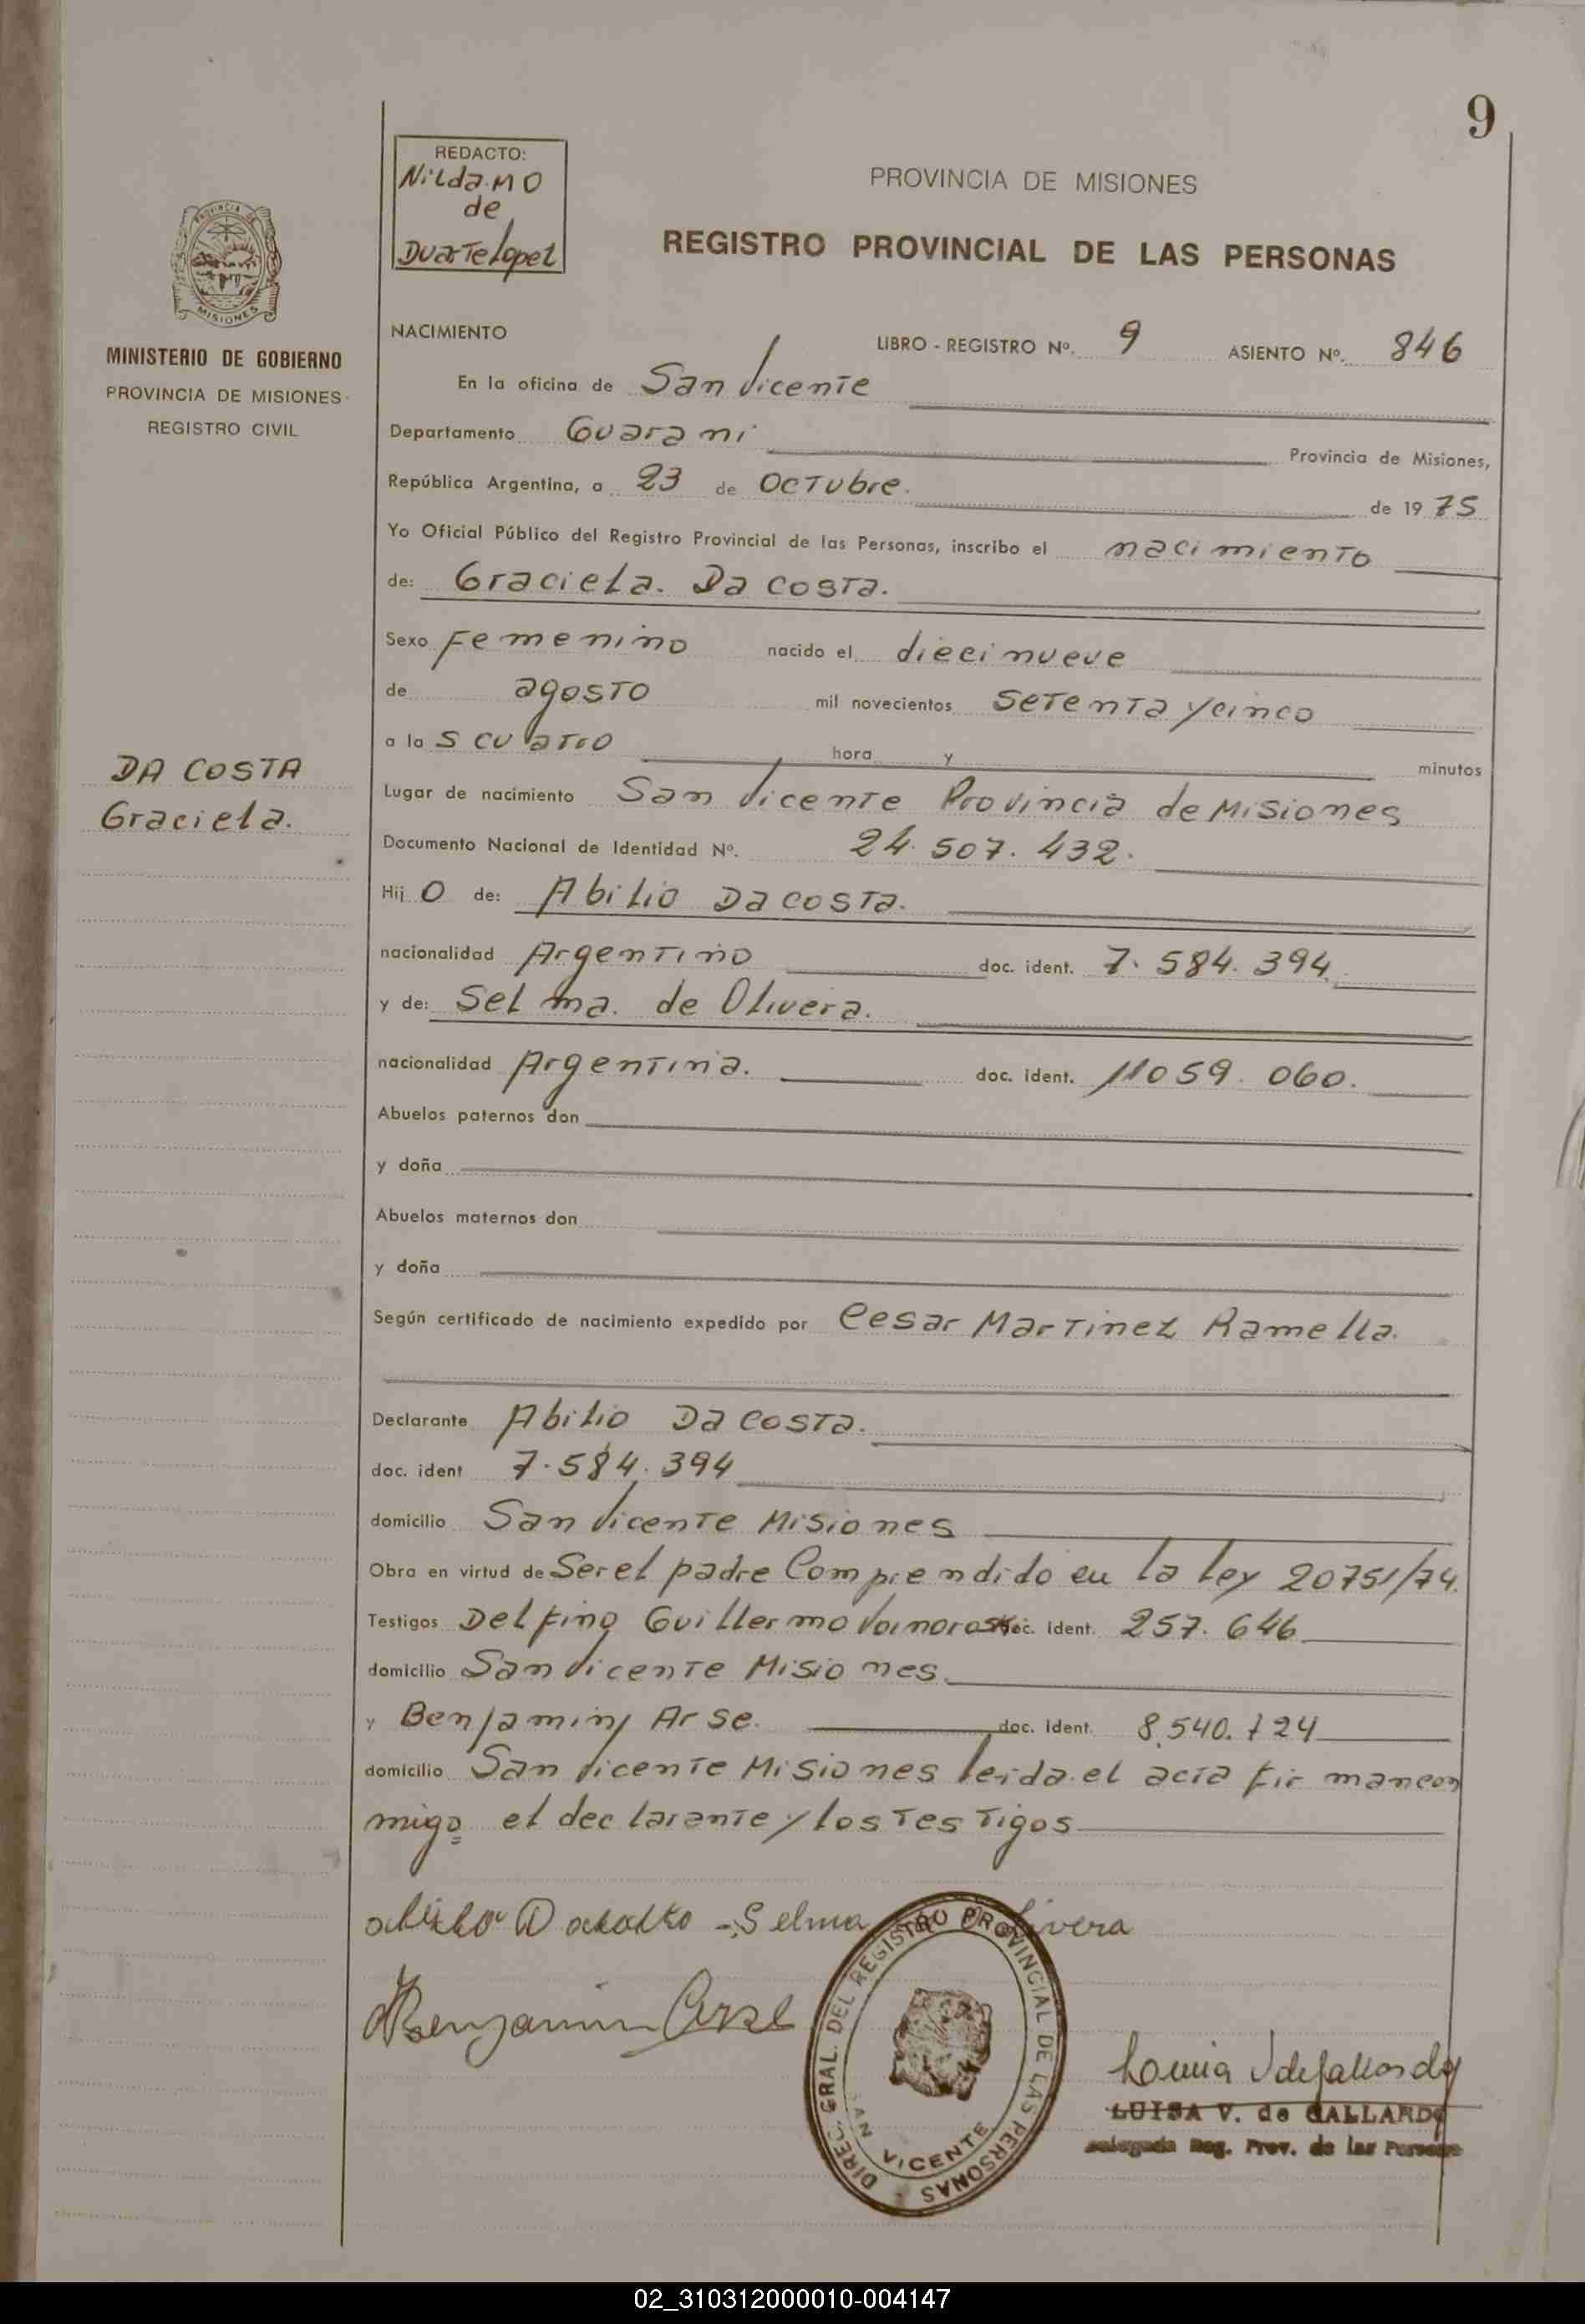 9
REDACTO:
Nilda.MO
de
Duarte Lopez
PROVINCIA DE MISIONES
REGISTRO PROVINCIAL DE LAS PERSONAS
PROVINCIA DE
MISIONES
MINISTERIO DE GOBIERNO
PROVINCIA DE MISIONES
REGISTRO CIVIL
NACIMIENTO LIBRO - REGISTRO Nº. 9 ASIENTO Nº. 846
En la oficina de San Vicente
Departamento Guarani Provincia de Misiones,
República Argentina, a 23 de Octubre. de 1975
Yo Oficial Público del Registro Provincial de las Personas, inscribo el nacimiento
de: Graciela. Da Costa.
Sexo Femenino nacido el diecinueve
de agosto mil novecientos Setenta y cinco
a las cuatro hora y minutos
DA COSTA
Graciela.
Lugar de nacimiento San Vicente Provincia de Misiones
Documento Nacional de Identidad Nº. 24.507.432.
Hijo de: Abilio Da Costa.
nacionalidad Argentino doc. ident. 7.584.394
y de: Selma. de Olivera.
nacionalidad Argentina. doc. ident. 11059.060.
Abuelos paternos don
y doña
Abuelos maternos don
y doña
Según certificado de nacimiento expedido por Cesar Martinez Ramella.
Declarante Abilio Da Costa.
doc. ident 7.584.394
domicilio San Vicente Misiones
Obra en virtud de Ser el padre Comprendido en la ley 20751/74.
Testigos Delfino Guillermo doc. ident. 257.646
domicilio San Vicente Misiones.
y Benjamin Arse. doc. ident. 8.540.124
domicilio San Vicente Misiones leida el acta firman con
migo el declarante y los Testigos
Selma Olivera
Benjamin Arse
DIREC. GRAL. DEL REGISTRO PROVINCIAL DE LAS PERSONAS
SAN VICENTE
LUISA V. de GALLARDO
Delegada Reg. Prov. de las Personas
02_310312000010-004147